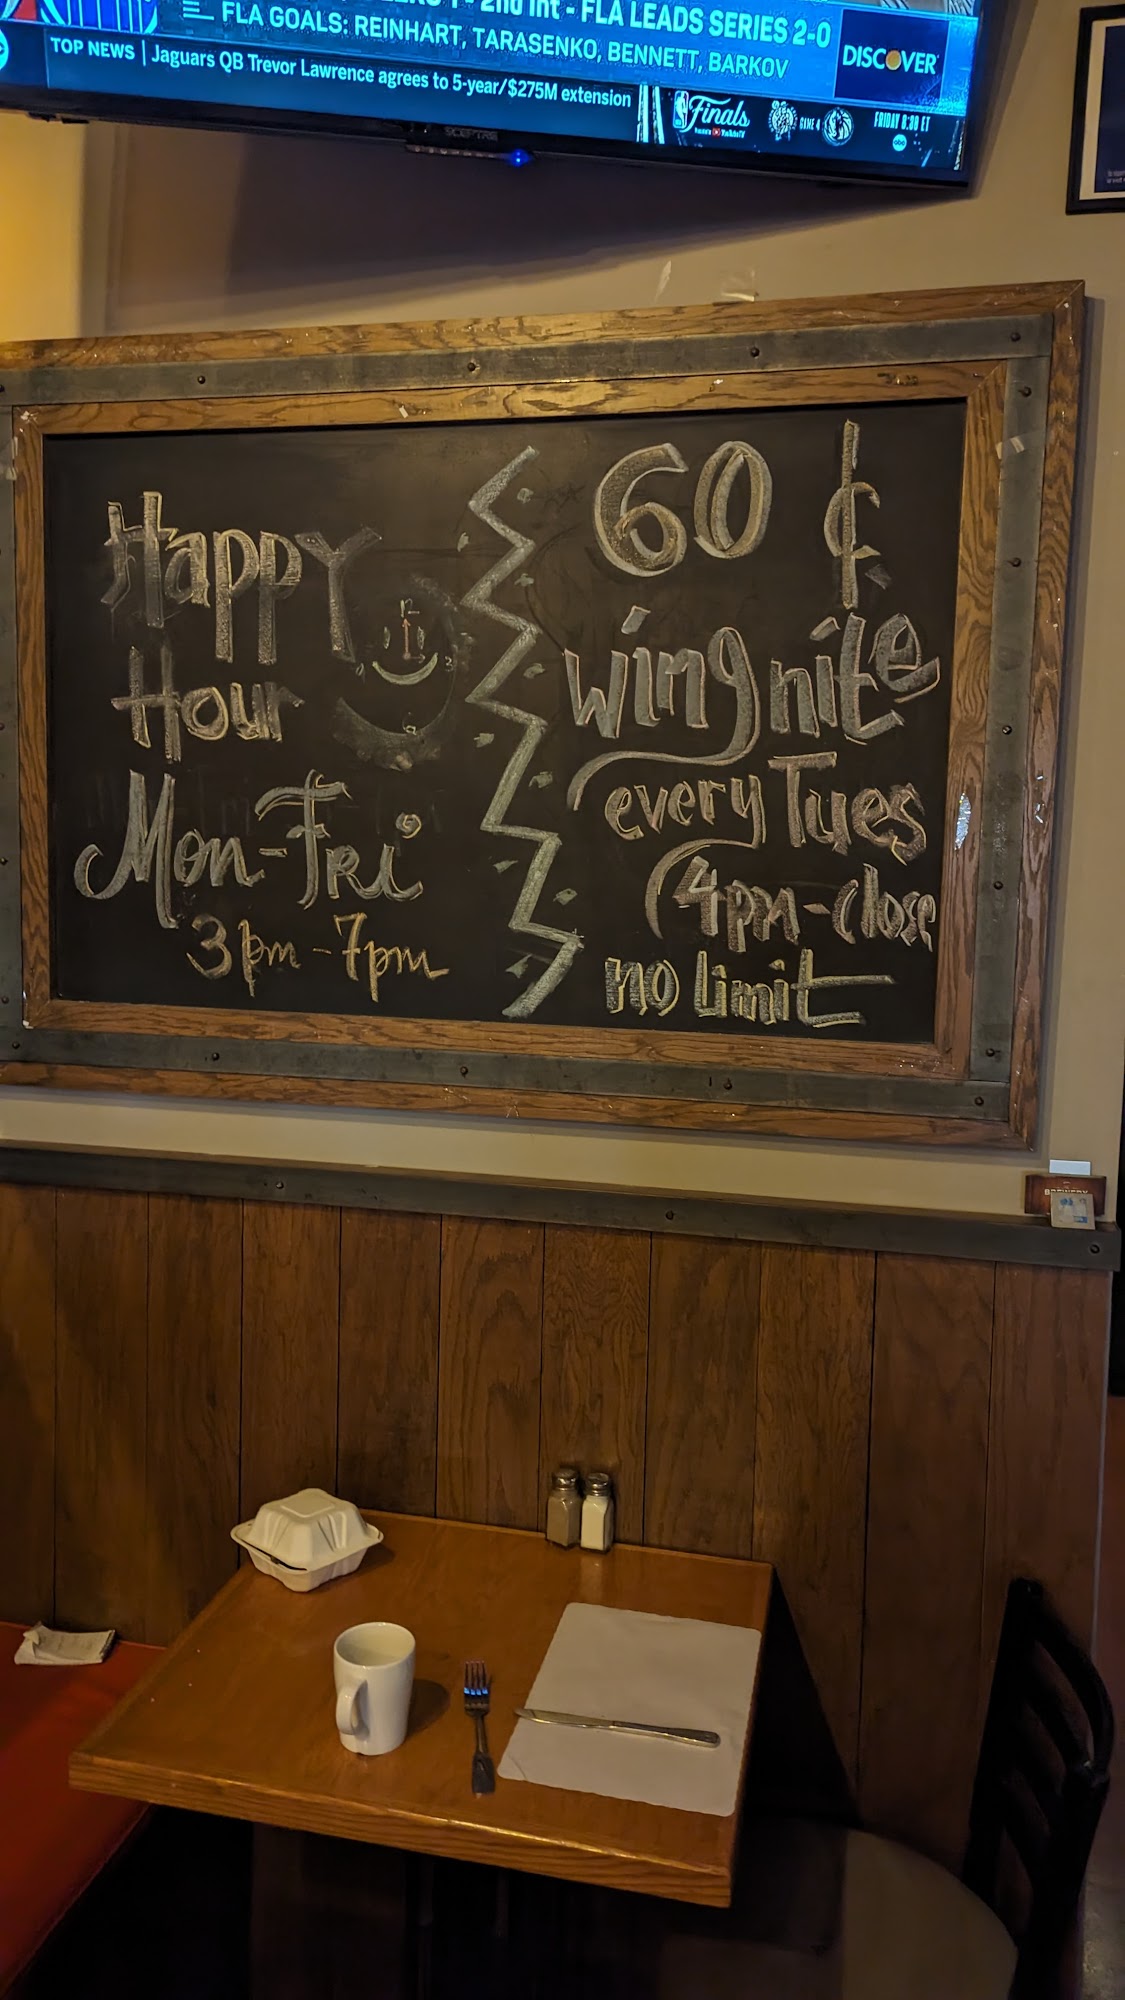 2nd Int - FLA LEADS SERIES 2-0
FLA GOALS: REINHART, TARASENKO, BENNETT, BARKOV
DISCOVER
TOP NEWS | Jaguars QB Trevor Lawrence agrees to 5-year/$275M extension
NBA Finals
YouTubeTV
GAME 4
FRIDAY 8:30 ET
abc
SCEPTRE
Happy
Hour
Mon-Fri
3pm-7pm
60 ¢
wing nite
every Tues
4pm-close
no limit
BREWERY